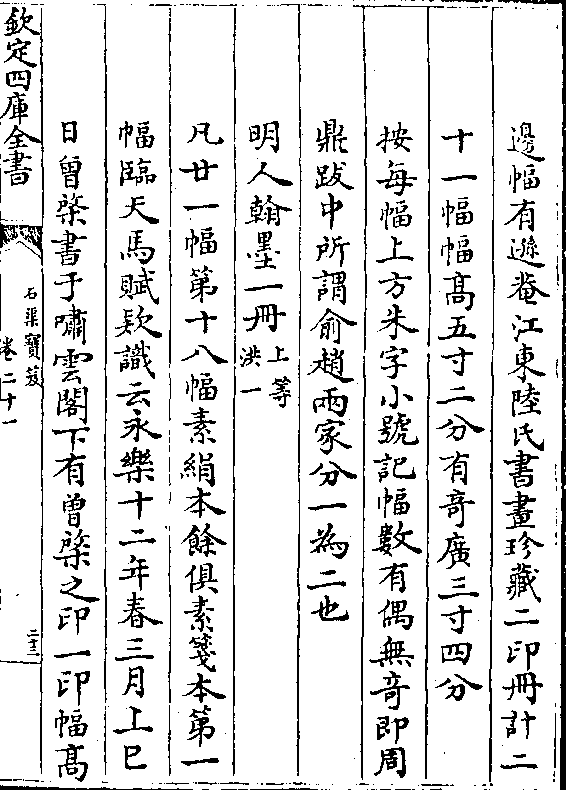 邊幅有遜菴江東陸氏書畫珍藏二印冊計二
十一幅幅髙五寸二分有竒廣三寸四分
按每幅上方朱字小號記幅數有偶無竒即周
鼎跋中所謂俞趙兩家分一為二也
明人翰墨一冊上等洪一
凡廿一幅第十八幅素絹本餘俱素箋本第一
幅臨天馬賦欵識云永樂十二年春三月上巳
日曾棨書于嘯雲閣下有曾棨之印一印幅髙
欽定四庫全書
石渠寶笈
卷二十一
二十三